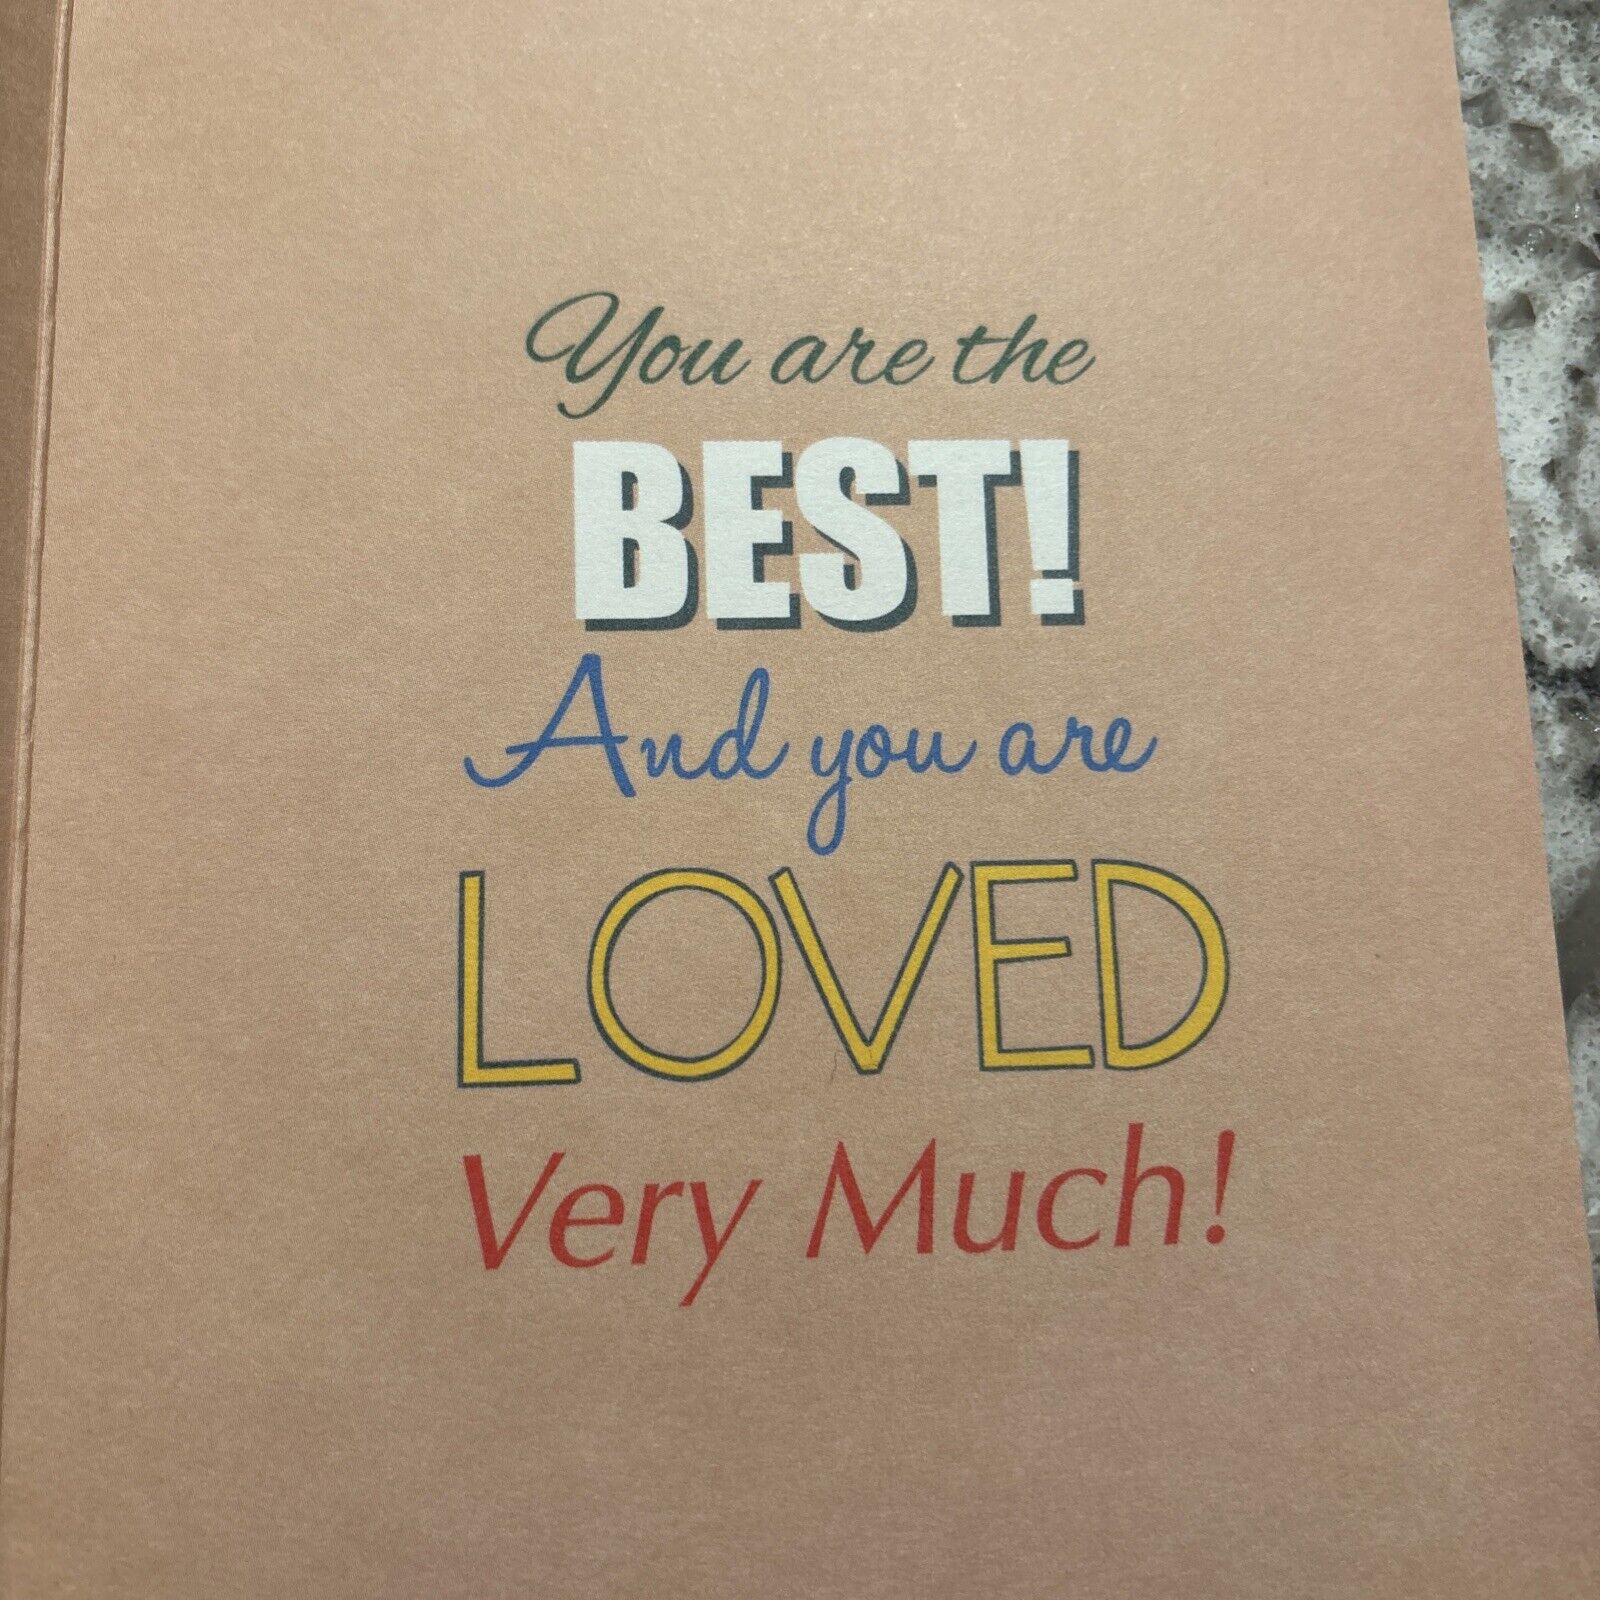 You are the
BEST!
And you are
LOVED
Very Much!